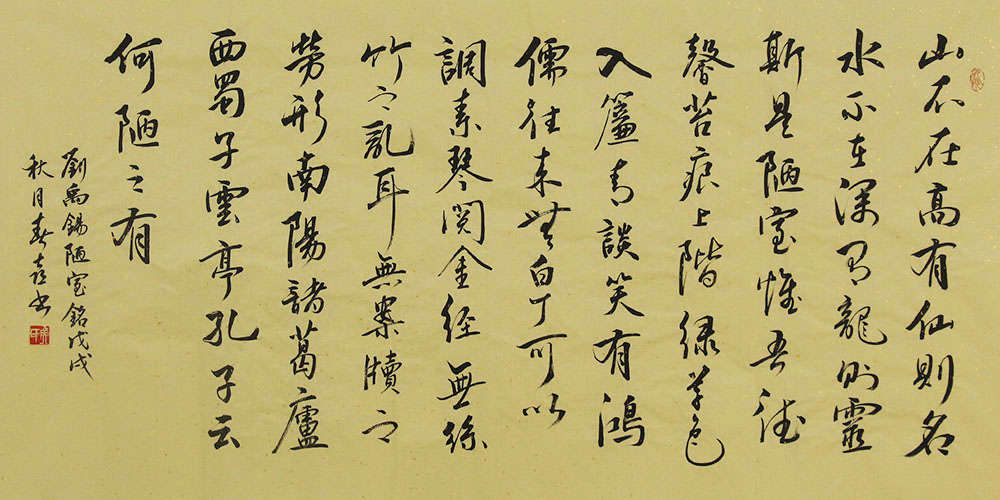 山不在高有仙則名
水不在深有龍則靈
斯是陋室惟吾德
馨苔痕上階緑草色
入簾青談笑有鴻
儒往来無白丁可以
調素琴閱金经無絲
竹之乱耳無案牘之
勞形南陽諸葛廬
西蜀子雲亭孔子云
何陋之有
劉禹錫陋室銘戊戌
秋月春喜书